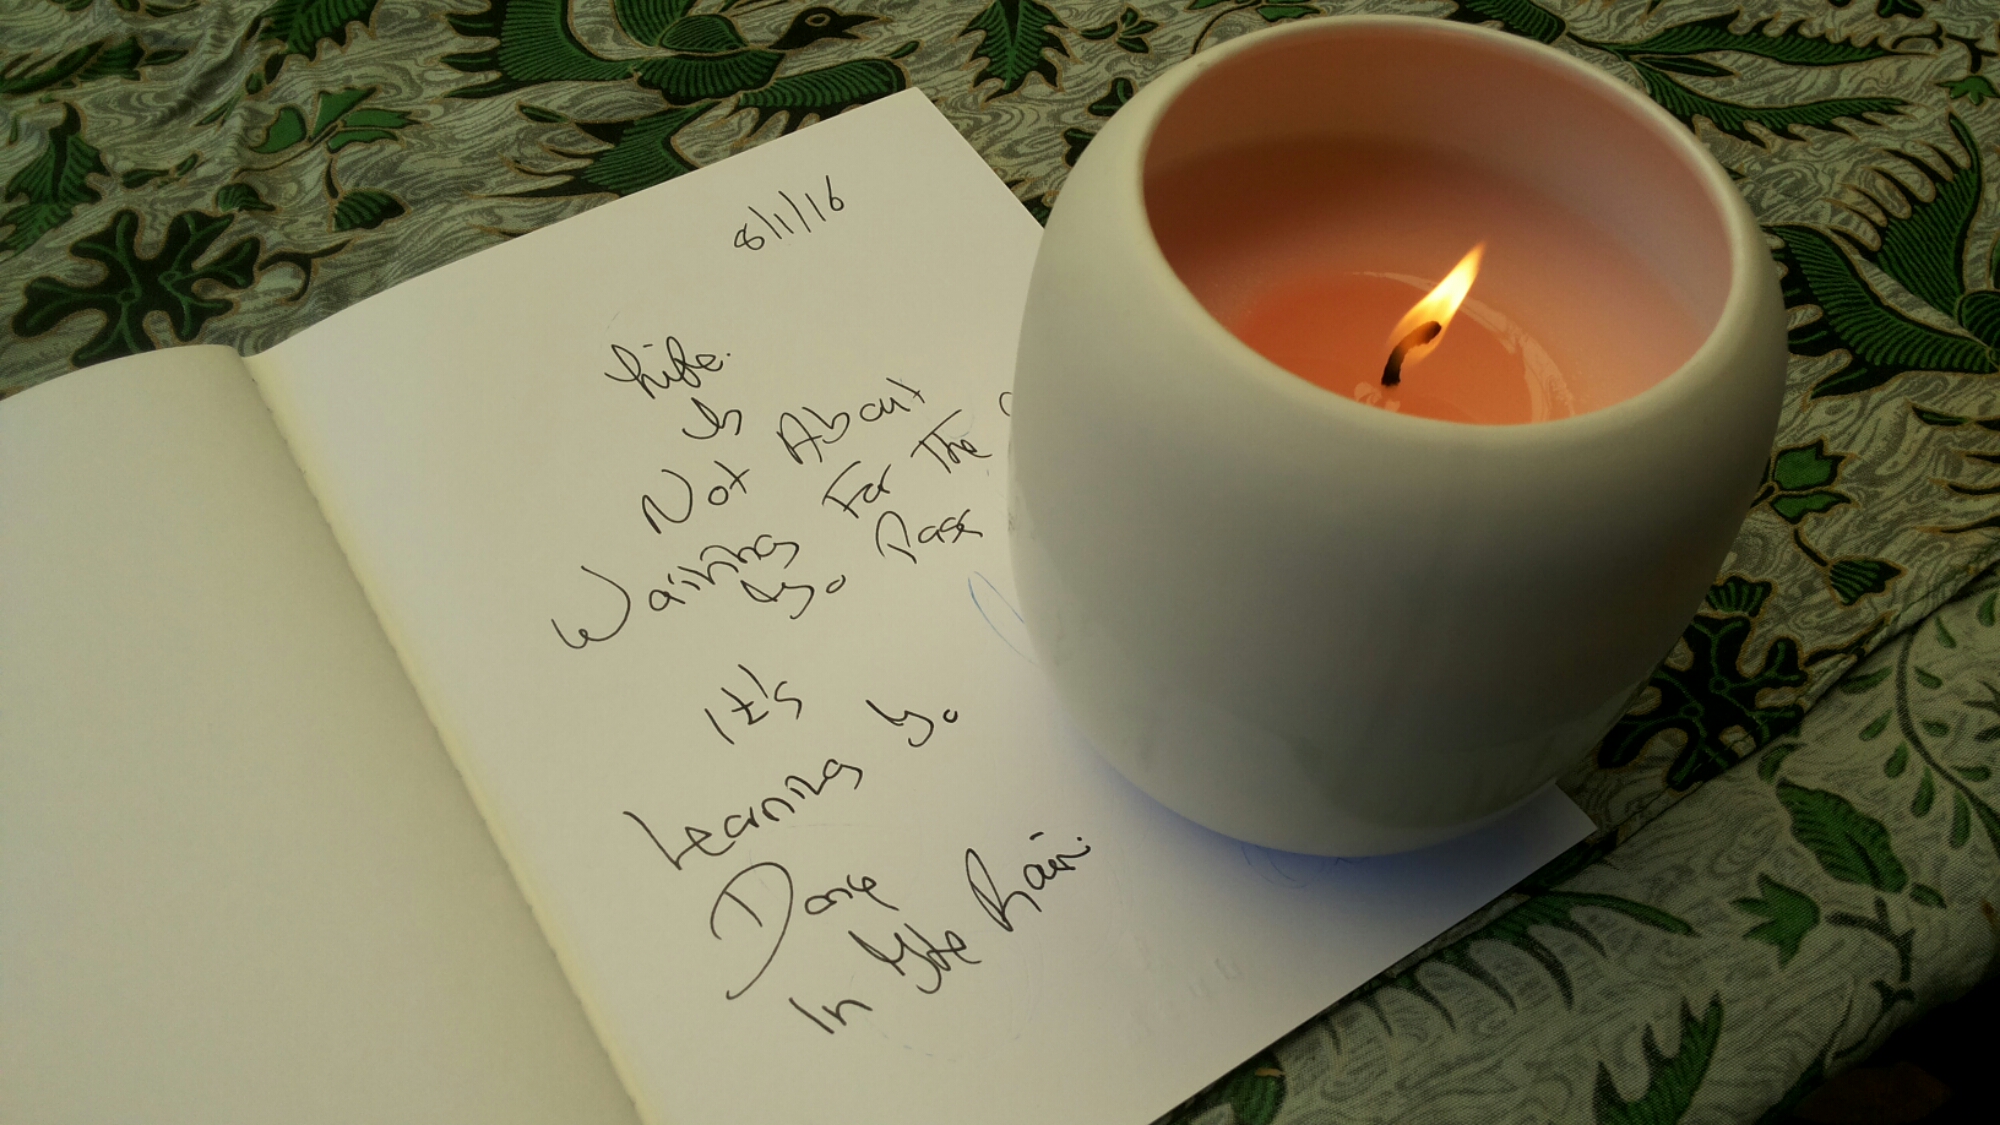 8/1/16
Life.
Is
Not About
Waiting For The
To Pass
It's
Learning To
Dance
In The Rain.